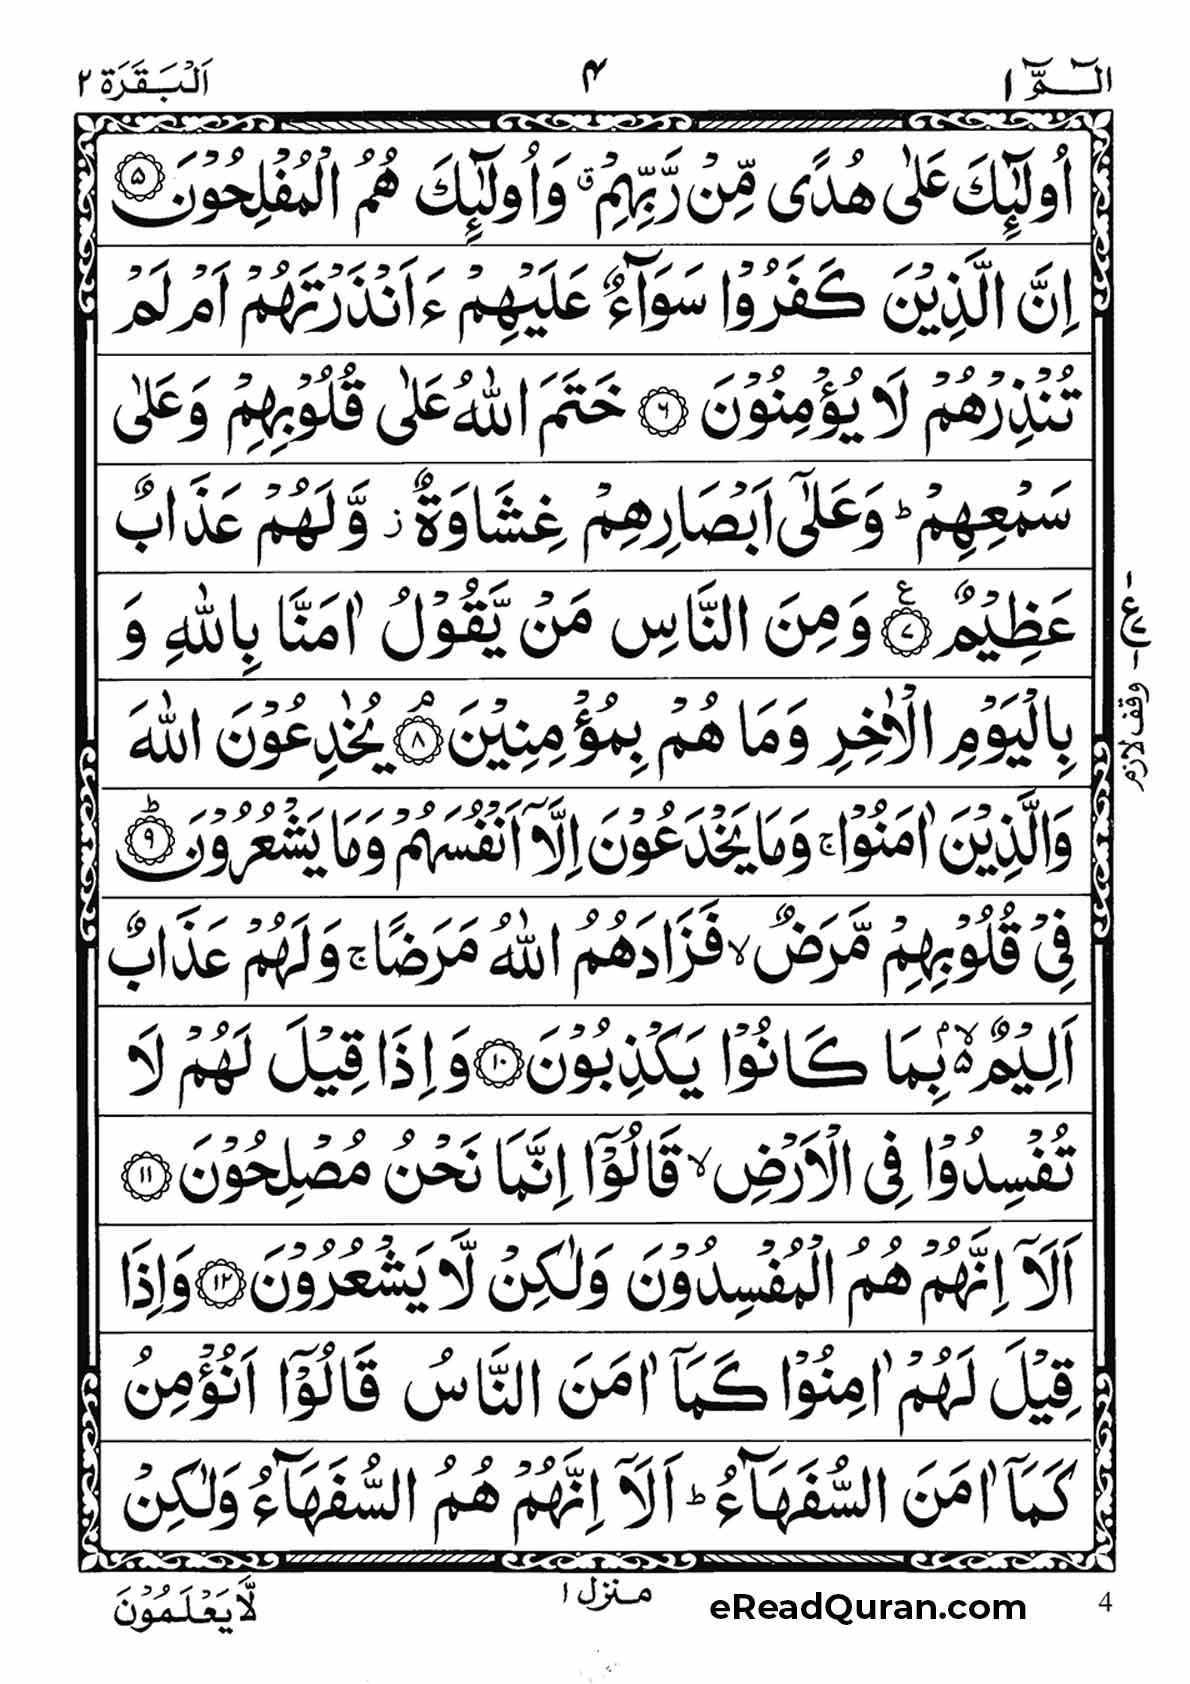 الٓمّٓ ١ ٤ اَلْبَقَرَة ٢
اُولٰٓئِكَ عَلٰی هُدًی مِّنْ رَّبِّهِمْ ۗ وَاُولٰٓئِكَ هُمُ الْمُفْلِحُوْنَ ۝۵
اِنَّ الَّذِیْنَ كَفَرُوْا سَوَآءٌ عَلَیْهِمْ ءَاَنْذَرْتَهُمْ اَمْ لَمْ
تُنْذِرْهُمْ لَا یُؤْمِنُوْنَ ۝۶ خَتَمَ اللّٰهُ عَلٰی قُلُوْبِهِمْ وَعَلٰی
سَمْعِهِمْ ؕ وَعَلٰۤی اَبْصَارِهِمْ غِشَاوَةٌ ز وَّلَهُمْ عَذَابٌ
عَظِیْمٌ ۝۷ ع وَمِنَ النَّاسِ مَنْ یَّقُوْلُ اٰمَنَّا بِاللّٰهِ وَ
بِالْیَوْمِ الْاٰخِرِ وَمَا هُمْ بِمُؤْمِنِیْنَ ۝۸ۘ یُخٰدِعُوْنَ اللّٰهَ
وَالَّذِیْنَ اٰمَنُوْا ۚ وَمَا یَخْدَعُوْنَ اِلَّاۤ اَنْفُسَهُمْ وَمَا یَشْعُرُوْنَ ۝۹ؕ
فِیْ قُلُوْبِهِمْ مَّرَضٌ ۙ فَزَادَهُمُ اللّٰهُ مَرَضًا ۚ وَلَهُمْ عَذَابٌ
اَلِیْمٌ ۬ ۙ بِمَا كَانُوْا یَكْذِبُوْنَ ۝۱۰ وَاِذَا قِیْلَ لَهُمْ لَا
تُفْسِدُوْا فِی الْاَرْضِ ۙ قَالُوْۤا اِنَّمَا نَحْنُ مُصْلِحُوْنَ ۝۱۱
اَلَاۤ اِنَّهُمْ هُمُ الْمُفْسِدُوْنَ وَلٰكِنْ لَّا یَشْعُرُوْنَ ۝۱۲ وَاِذَا
قِیْلَ لَهُمْ اٰمِنُوْا كَمَاۤ اٰمَنَ النَّاسُ قَالُوْۤا اَنُؤْمِنُ
كَمَاۤ اٰمَنَ السُّفَهَآءُ ؕ اَلَاۤ اِنَّهُمْ هُمُ السُّفَهَآءُ وَلٰكِنْ
ع
وقف لازم
لَّا یَعْلَمُوْنَ
منزل ١
eReadQuran.com
4